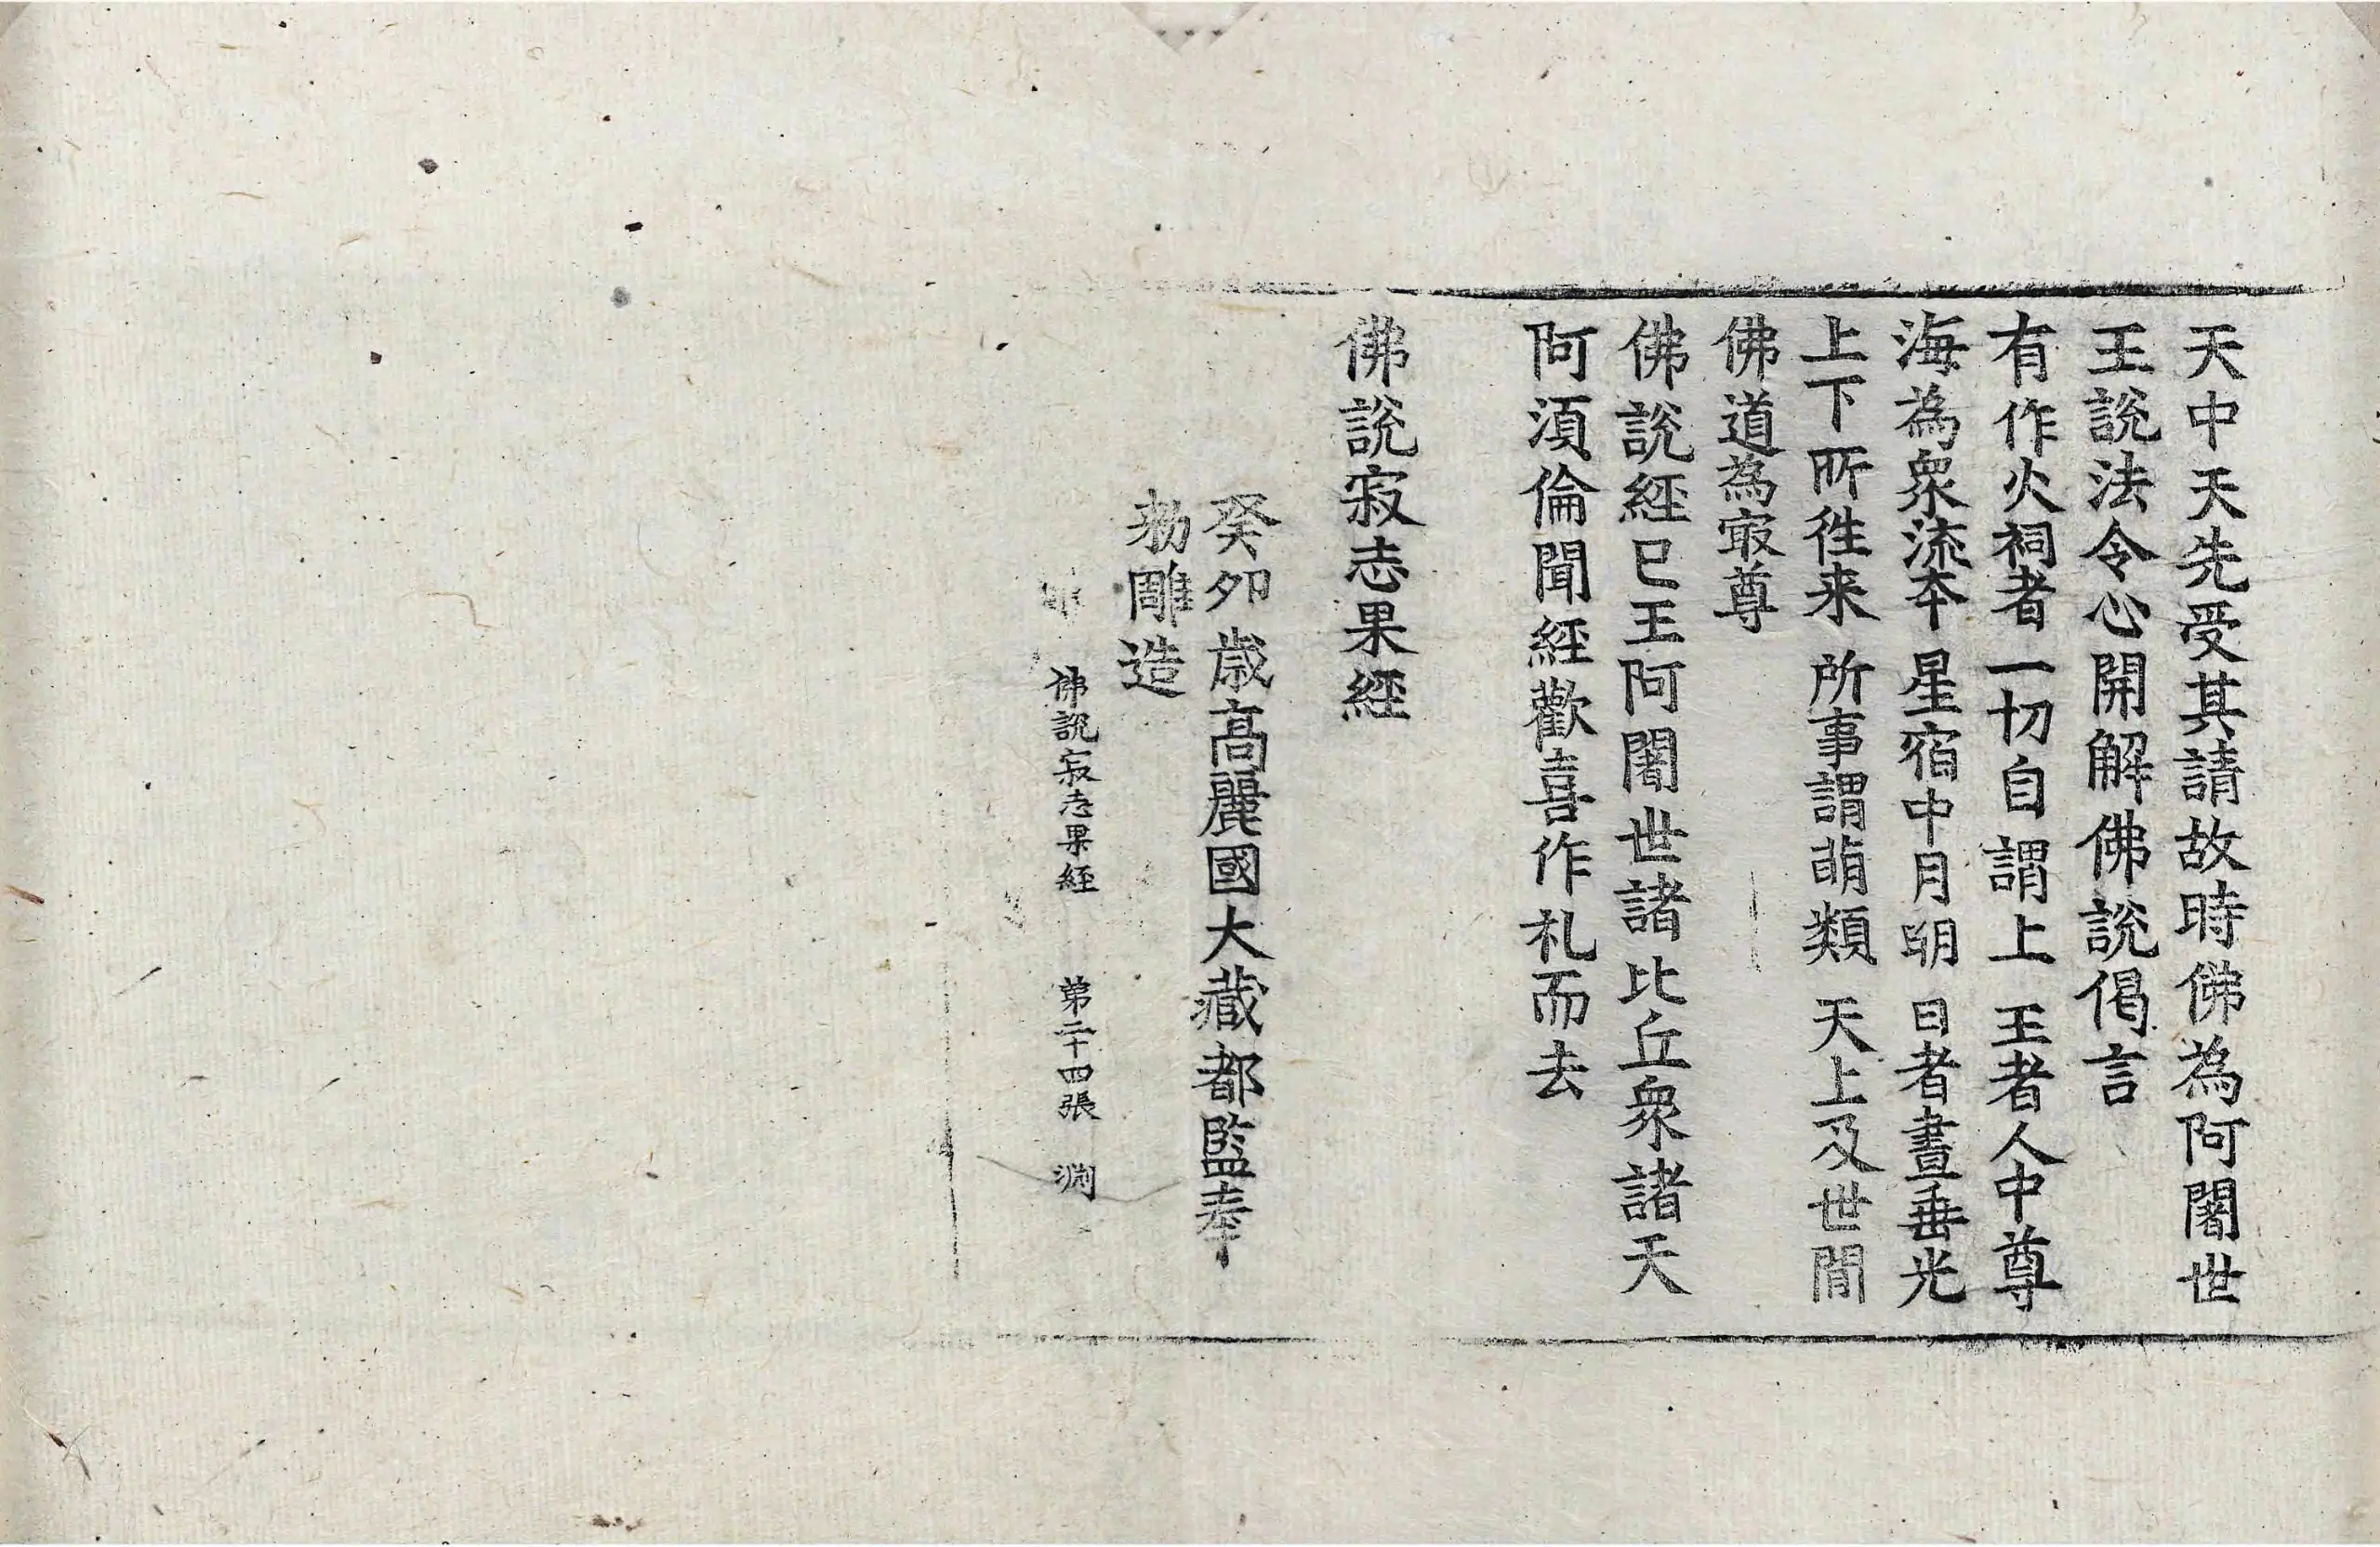 天中天先受其請故時佛為阿闍世
王說法令心開解佛說偈言
有作火祠者 一切自謂上 王者人中尊
海為衆流夲 星宿中月明 日者晝垂光
上下所徃来 所事謂萌類 天上及世閒
佛道為㝡尊
佛說經已王阿闍世諸比丘衆諸天
阿湏倫聞經歡喜作礼而去
佛說寂志果經
癸夘歲高麗國大藏都監奉
勑雕造
佛說寂志果經 第二十四張 渕